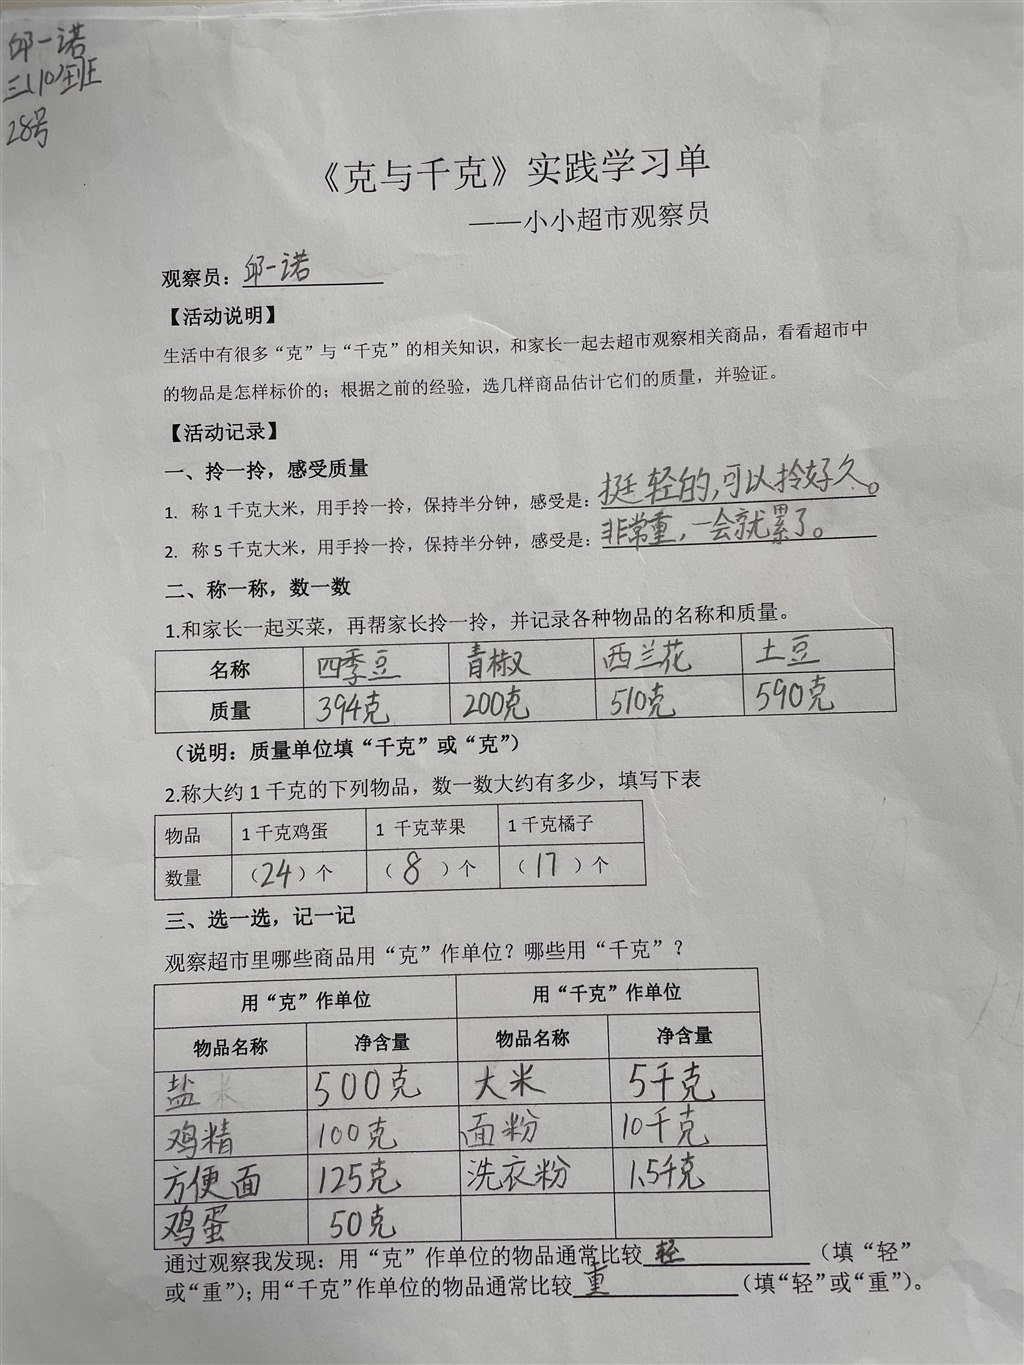 邱一诺
三(10)班
28号
《克与千克》实践学习单
——小小超市观察员
观察员：邱一诺
【活动说明】
生活中有很多“克”与“千克”的相关知识，和家长一起去超市观察相关商品，看看超市中
的物品是怎样标价的；根据之前的经验，选几样商品估计它们的质量，并验证。
【活动记录】
一、拎一拎，感受质量
1. 称1千克大米，用手拎一拎，保持半分钟，感受是：挺轻的,可以拎好久。
2. 称5千克大米，用手拎一拎，保持半分钟，感受是：非常重，一会就累了。
二、称一称，数一数
1.和家长一起买菜，再帮家长拎一拎，并记录各种物品的名称和质量。
名称 四季豆 青椒 西兰花 土豆
质量 394克 200克 510克 590克
（说明：质量单位填“千克”或“克”）
2.称大约1千克的下列物品，数一数大约有多少，填写下表
物品 1千克鸡蛋 1 千克苹果 1千克橘子
数量 （24）个 （8）个 （17）个
三、选一选，记一记
观察超市里哪些商品用“克”作单位？哪些用“千克”？
用“克”作单位 用“千克”作单位
物品名称 净含量 物品名称 净含量
盐 500克 大米 5千克
鸡精 100克 面粉 10千克
方便面 125克 洗衣粉 1.5千克
鸡蛋 50克
通过观察我发现：用“克”作单位的物品通常比较轻（填“轻”
或“重”）；用“千克”作单位的物品通常比较重（填“轻”或“重”）。